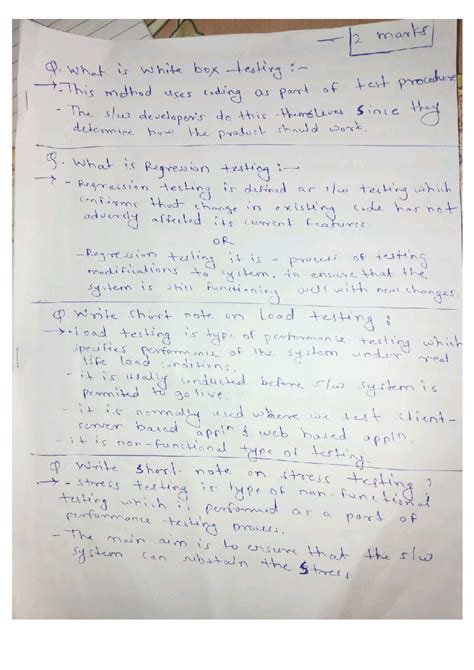 — 2 marks
Q. What is White box testing :-
→ - This method uses coding as part of test procedure
- The s/w developers do this themselves since they
determine how the product should work.
Q. What is Regression testing :-
→ - Regression testing is defined as s/w testing which
confirms that change in existing code has not
adversly affected its current features.
OR
- Regression testing it is a process of testing
modifications to system, to ensure that the
system is still functioning well with new changes.
Q. Write short note on Load testing :
→ • Load testing is type of performance testing which
specifies performance of the system under real
life load conditions.
- it is usually unducted before s/w system is
permited to go live.
- it is normally used where we test client-
server based appln & web based appln.
- it is non-functional type of testing
Q. Write Short note on stress testing ?
→ - Stress testing is type of non-functional
testing which is performed as a part of
performance testing process.
- The main aim is to ensure that the s/w
system can substain the Stress